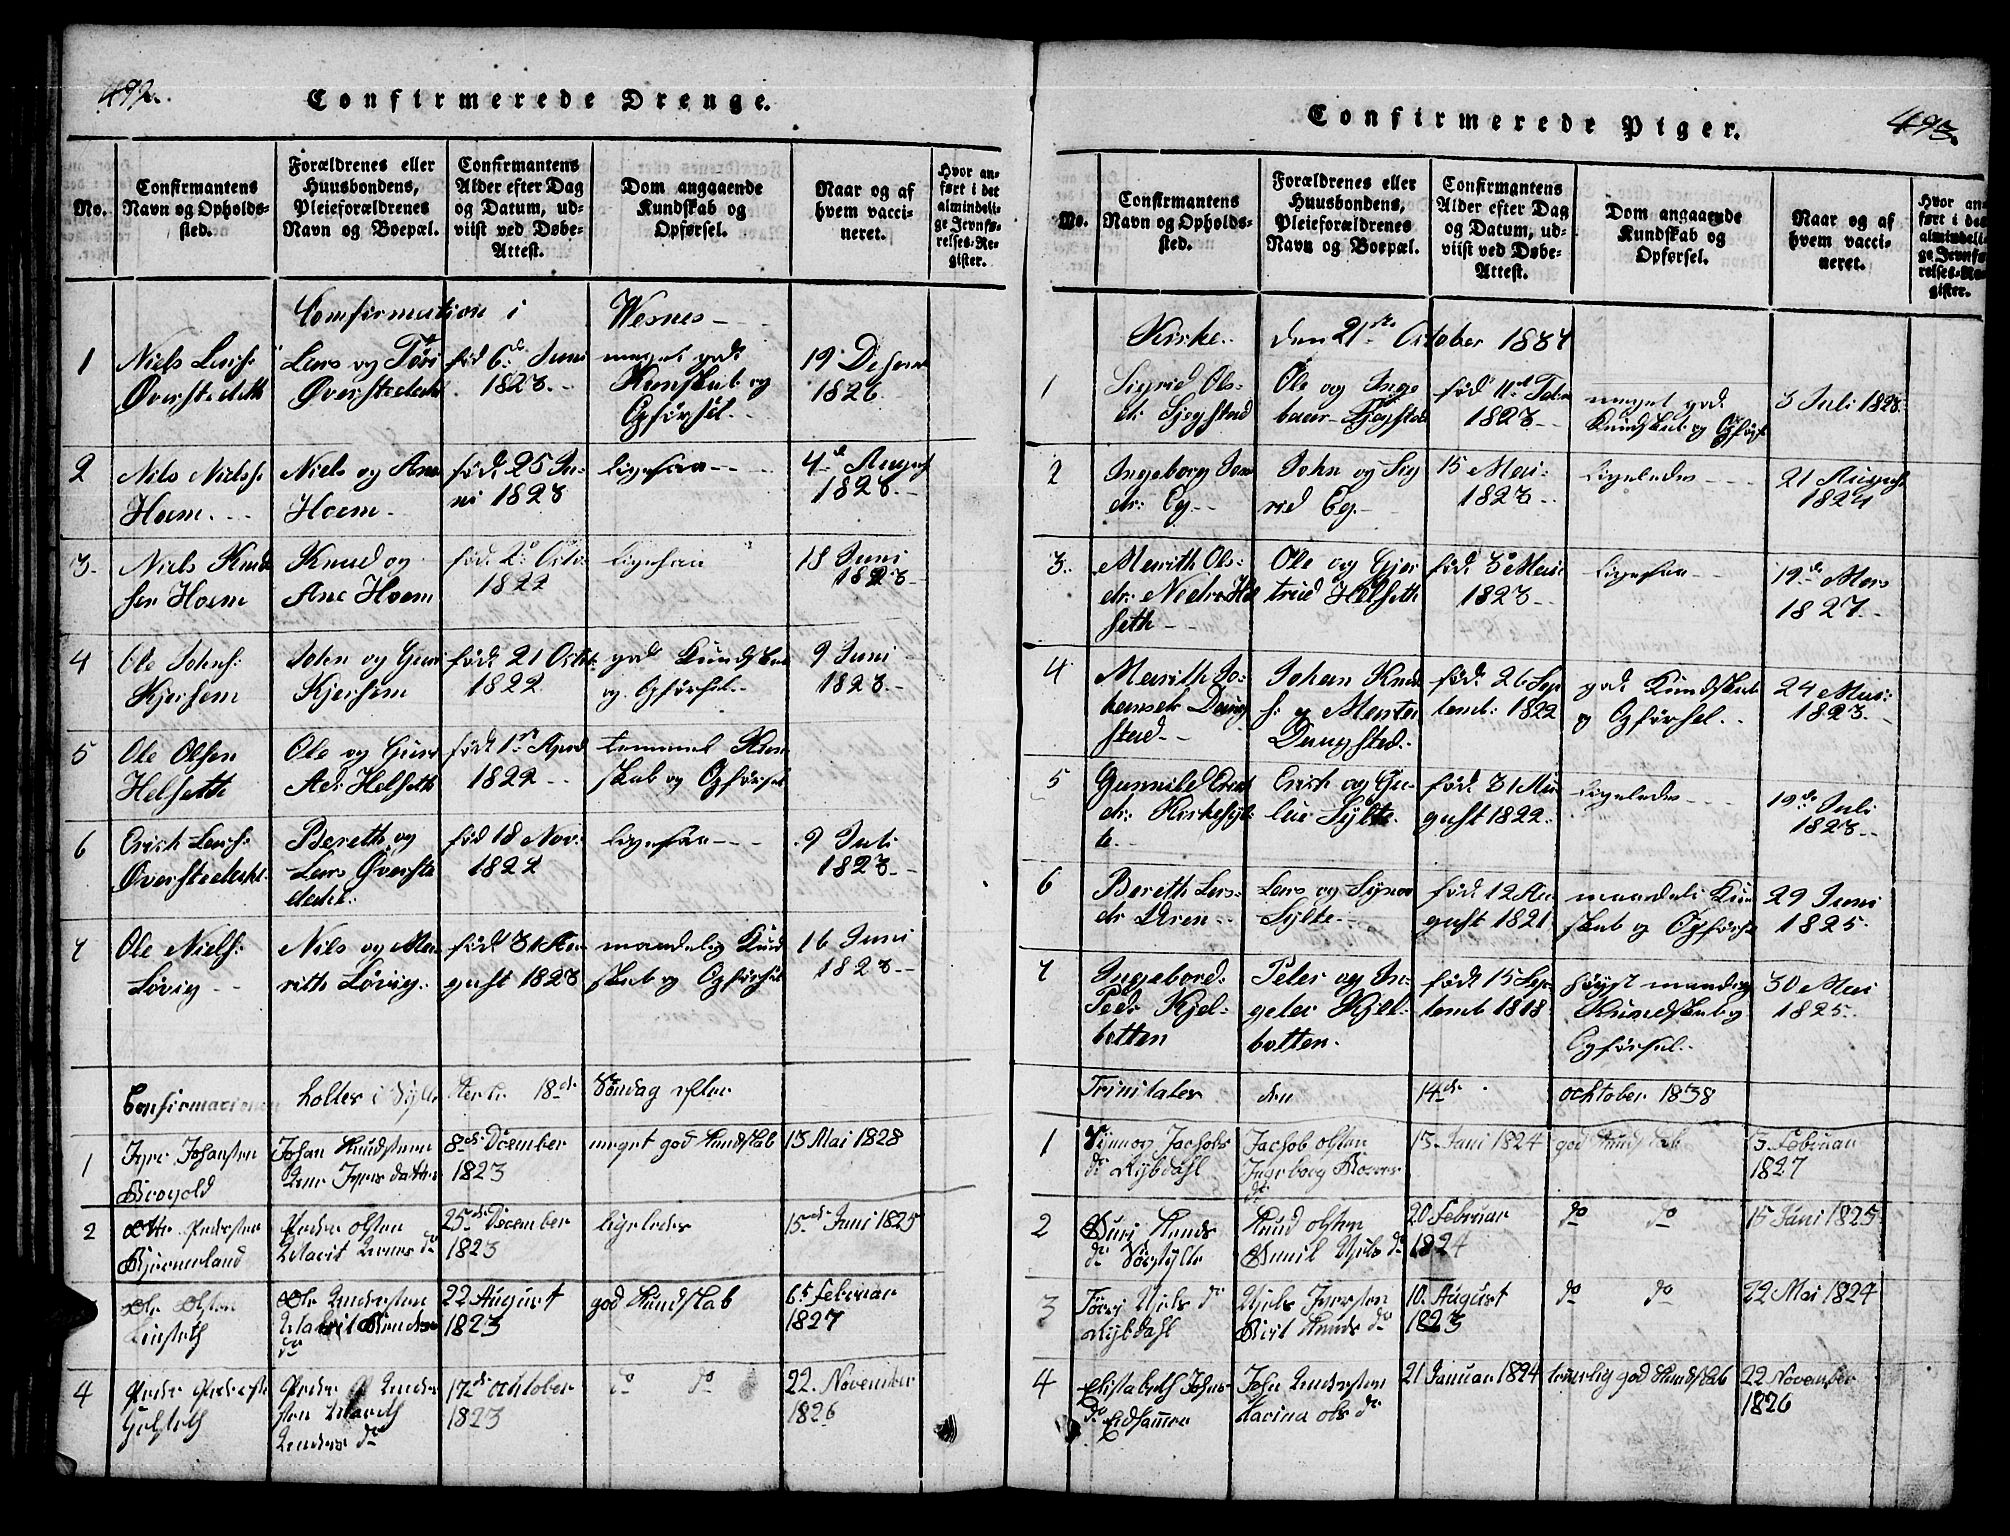 492.
Confirmerede Drenge.
No.
Confirmantens
Navn og Opholds-
sted.
Forældrenes eller
Huusbondens,
Pleieforældrenes
Navn og Boepæl.
Confirmantens
Alder efter Dag
og Datum, ud-
viist ved Døbe-
Attest.
Dom angaaende
Kundskab og
Opførsel.
Naar og af
hvem vacci-
neret.
Hvor an-
ført i det
almindeli-
ge Jevnfø-
relses-Re-
gister.
Confirmation i Wesnes
1
Niels Larss:
Øverstedeth
Lars og
Øverstedeth
fød 6te Juni
1823.
meget god
Kunskab og
Opførsel.
19 Desem
1826
2
Nils Nielss:
Hoem.
Niels og Ane
Hoem.
fød. 25 Ju-
ni 1823
ligesaa
4de August
1823.
3.
Niels Knud
sen Hoem
Knud og
Ane Hoem
fød. 2
1822
ligesaa
18 Juni
1823
4
Ole Johns:
Kjersem
John og Guri
Kjersem
fød. 21 Octob.
1822
god Kundskab
og Opførsel.
9 Juni
1823.
5
Ole Olsen
Helseth
Ole og Guri
Helseth
fød. 1st April
1822
temmel Kun
skab og Opførsel
6
Erich Larss:
Øverstedeth.
Bereth og
Lars Øverste
deth.
fød 18 Nov:
1822
ligesaa
9 Juli
1823.
7
Ole Niels:
Løvig
Nils og Ma
rith Løvig.
fød. 31 Au
gust 1823
maadelig Kund
skab og Opførsel
16 Juni
1823.
Confirmationen holtes i Sylte 18de Søndag efter
1
Johansen
Johan Knudsen
Ane Iversdatter
8de December
1823
meget god Kundskab
13 Mai 1828
2
Pedersen
Bjørnerland
Peder Olsen
Marit do
25de December
1823
ligeledes
15de Juni 1825
Ole Olsen
Ole Andersen
Marit
do
22 August
1823
god Kundskab
6 Februar
1827
4
Peder Pederse
Peder Ander
sen Mareth
Anders do
17de October
1823
do do
22. November
1826
Confirmerede Piger.
493.
No.
Confirmantens
Navn og Opholds-
sted.
Forældrenes eller
Huusbondens,
Pleieforældrenes
Navn og Boepæl.
Confirmantens
Alder efter Dag
og Datum, ud-
viist ved Døbe-
Attest.
Dom angaaende
Kundskab og
Opførsel.
Naar og af
hvem vacci-
neret.
Hvor an-
ført i det
almindeli-
ge Jevnfø-
relses-Re-
gister.
Kirke. den 21st October
1
Sigrid Ols-
dr.
Ole og Inge
baar
fød 11te
1823
meget god
Kundskab og Opførsel
3 Juli 1828.
2
Ingeborg Jon
dr: Eg
John og Sig
rid Eg.
15 Mai
1823
Ligeledes
21 August
1824
3.
Marith Ols-
dr: Hel
seth
Ole og Gjer
trud Helseth
fød. 3 Mai
1823
Ligesaa
19de Mars
1827.
4
Marith Jo-
hansdr Daug
stad.
Johan Knud
s: og Marte
Daugstad.
fød. 26 Sep
temb: 1822
god Kundskab
og Opførsel.
24 Mai:
1823.
5
Gunnild Erich
dr: Kirkesylt
e.
Erich og Gu-
Sylte.
fød 31 Au
gust 1822.
Ligeledes
19de Juli
1823.
6
Berith Lars-
dr Uren
Lars og Synov
Sylte
fød 12 Au
gust 1821.
maadeli Kun
skab og Opførse
29 Juni
1825.
7
Ingebord
Pedr Kjel-
botten
Peter og In-
Kjel-
botten.
fød. 15 Sep-
temb 1818
høyst maadeg
Kundskab og
Opførsel.
30 Mai
1825.
Trinitates den 14de ochtober 1838
1
Jachobs
do Rybdahl
Jachob Olsen
Ingeborg
do
13 Juni 1824
god Kundskab
13. Februar
1827
2
Guri Knuds
do
Knud Olsen
Gunil Njels do
20 Februar
1824
do do
15 Juni 1825
3
Njels do
Rybdahl
Njels Iversen
Birit Knuds do
10. August
1823
do do
22 Mai 1824
4
Elisabeth Johns
do
John Andersen
Karina Ols do
21 Januar 1824
god Kundskab
22 November
1826